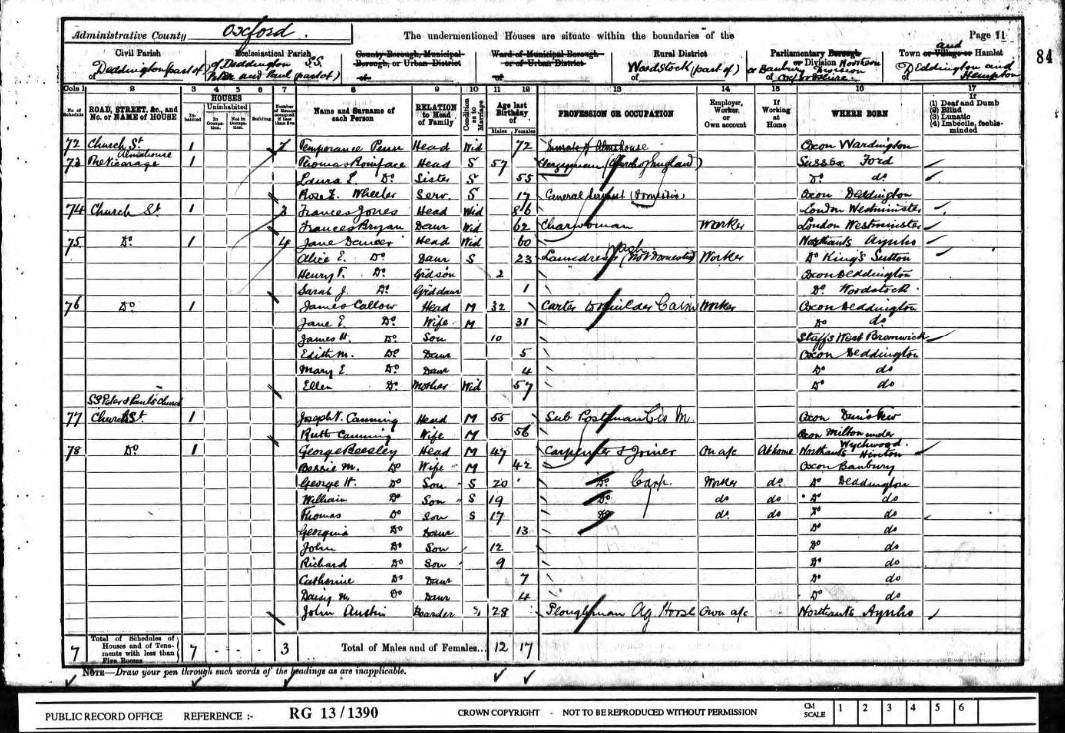 Administrative County Oxford The undermentioned Houses are situate within the boundaries of the Page 11
84
Civil Parish Ecclesiastical Parish County Borough, Municipal Borough, or Urban District Ward of Municipal Borough or of Urban District Rural District Parliamentary Borough or Division Town or Village or Hamlet
of Deddington (part of) of Deddington S.S. Peter and Paul (part of) of of of Woodstock (part of) of Deddington and Hempton
Cols 1 2 3 4 5 6 7 8 9 10 11 12 13 14 15 16 17
No. of Schedule ROAD, STREET, &c., and No. or NAME of HOUSE HOUSES Inhabited Uninhabited In Occupation Not in Occupation Building Number of Rooms occupied if less than five Name and Surname of each Person RELATION to Head of Family Condition as to Marriage Age last Birthday of Males Females PROFESSION OR OCCUPATION Employer, Worker, or Own account If Working at Home WHERE BORN If (1) Deaf and Dumb (2) Blind (3) Lunatic (4) Imbecile, feeble-minded
72 Church St Almshouse 1 Temperance Head Wid 72 Oxon Wardington
73 The Vicarage 1 Thomas Boniface Head S 57 Clergyman (Church of England) Sussex Ford
Laura Do Sister S 55 Do do
Rose E. Wheeler Serv. S 17 General Servant (Domestic) Oxon Deddington
74 Church St 1 3 Frances Jones Head Wid 86 London Westminster
Frances Bryan Daur Wid 62 Charwoman Worker London Westminster
75 Do 1 4 Jane Dancer Head Wid 60 Northants Aynho
Alice E. Do Daur S 23 Laundress Wash (Not Domestic) Worker Do King's Sutton
Henry F. Do Gridson 2 Oxon Deddington
Sarah J. Do Griddaur 1 Do Woodstock
76 Do 1 James Callow Head M 32 Carter Worker Oxon Deddington
Jane E. Do Wife M 31 Do do
James H. Do Son 10 Staffs West Bromwich
Edith M. Do Daur 5 Oxon Deddington
Mary E Do Daur 4 Do do
Ellen Do Mother Wid 57 Do do
SS Peter & Paul's Church
77 Church St 1 Joseph Canning Head M 55 Sub Postman Oxon
Ruth Canning Wife M 56 Oxon Milton under Wychwood
78 Do 1 George Beesley Head M 47 Carpenter & Joiner On a/c At home Northants Hinton
Bessie M. Do Wife M 42 Oxon Banbury
George H. Do Son S 20 Do Carp. Worker do Do Deddington
William Do Son S 19 Do do do Do do
Thomas Do Son S 17 Do do do Do do
Georgina Do Daur 13 Do do
John Do Son 12 Do do
Richard Do Son 9 Do do
Catherine Do Daur 7 Do do
Daisy M. Do Daur 4 Do do
John Austin Boarder S 28 Ploughman Ag Horse Own a/c Northants Aynho
7 Total of Schedules of Houses and of Tenements with less than Five Rooms 7 - - - 3 Total of Males and of Females... 12 17
NOTE—Draw your pen through such words of the headings as are inapplicable.
PUBLIC RECORD OFFICE REFERENCE :- RG 13/1390 CROWN COPYRIGHT - NOT TO BE REPRODUCED WITHOUT PERMISSION CM SCALE 1 2 3 4 5 6